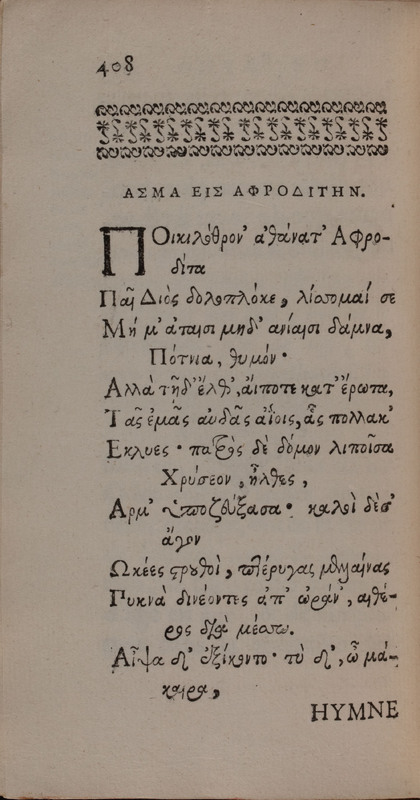 408
ΑΣΜΑ ΕΙΣ ΑΦΡΟΔΙΤΗΝ.
ΠΟικιλόθρον' ἀθάνατ' Αφρο-
δίτα
Παῖ Διὸς δολοπλόκε, λίσσομαί σε
Μή μ' ἄταισι μηδ' ἀνίαισι δάμνα,
Πότνια, θυμόν·
Αλλὰ τῇδ' ἔλθ', αἴποτε κατ' ἔρωτα,
Τᾶς ἐμᾶς αὐδᾶς ἀΐοις, ἇς πολλακ'
Εκλυες· πατρὸς δὲ δόμον λιποῖσα
Χρύσεον, ἦλθες,
Αρμ' ὑποζεύξασα· καλοὶ δέσ'
ἄγον
Ωκέες στρουθοὶ, πτέρυγας μελαίνας
Πυκνὰ δινέοντες ἀπ' ὠράν', αἰθέ-
ρος διὰ μέσσω.
Αἶψα δ' ἐξίκοντο· τὺ δ', ὦ μά-
καιρα,
HYMNE